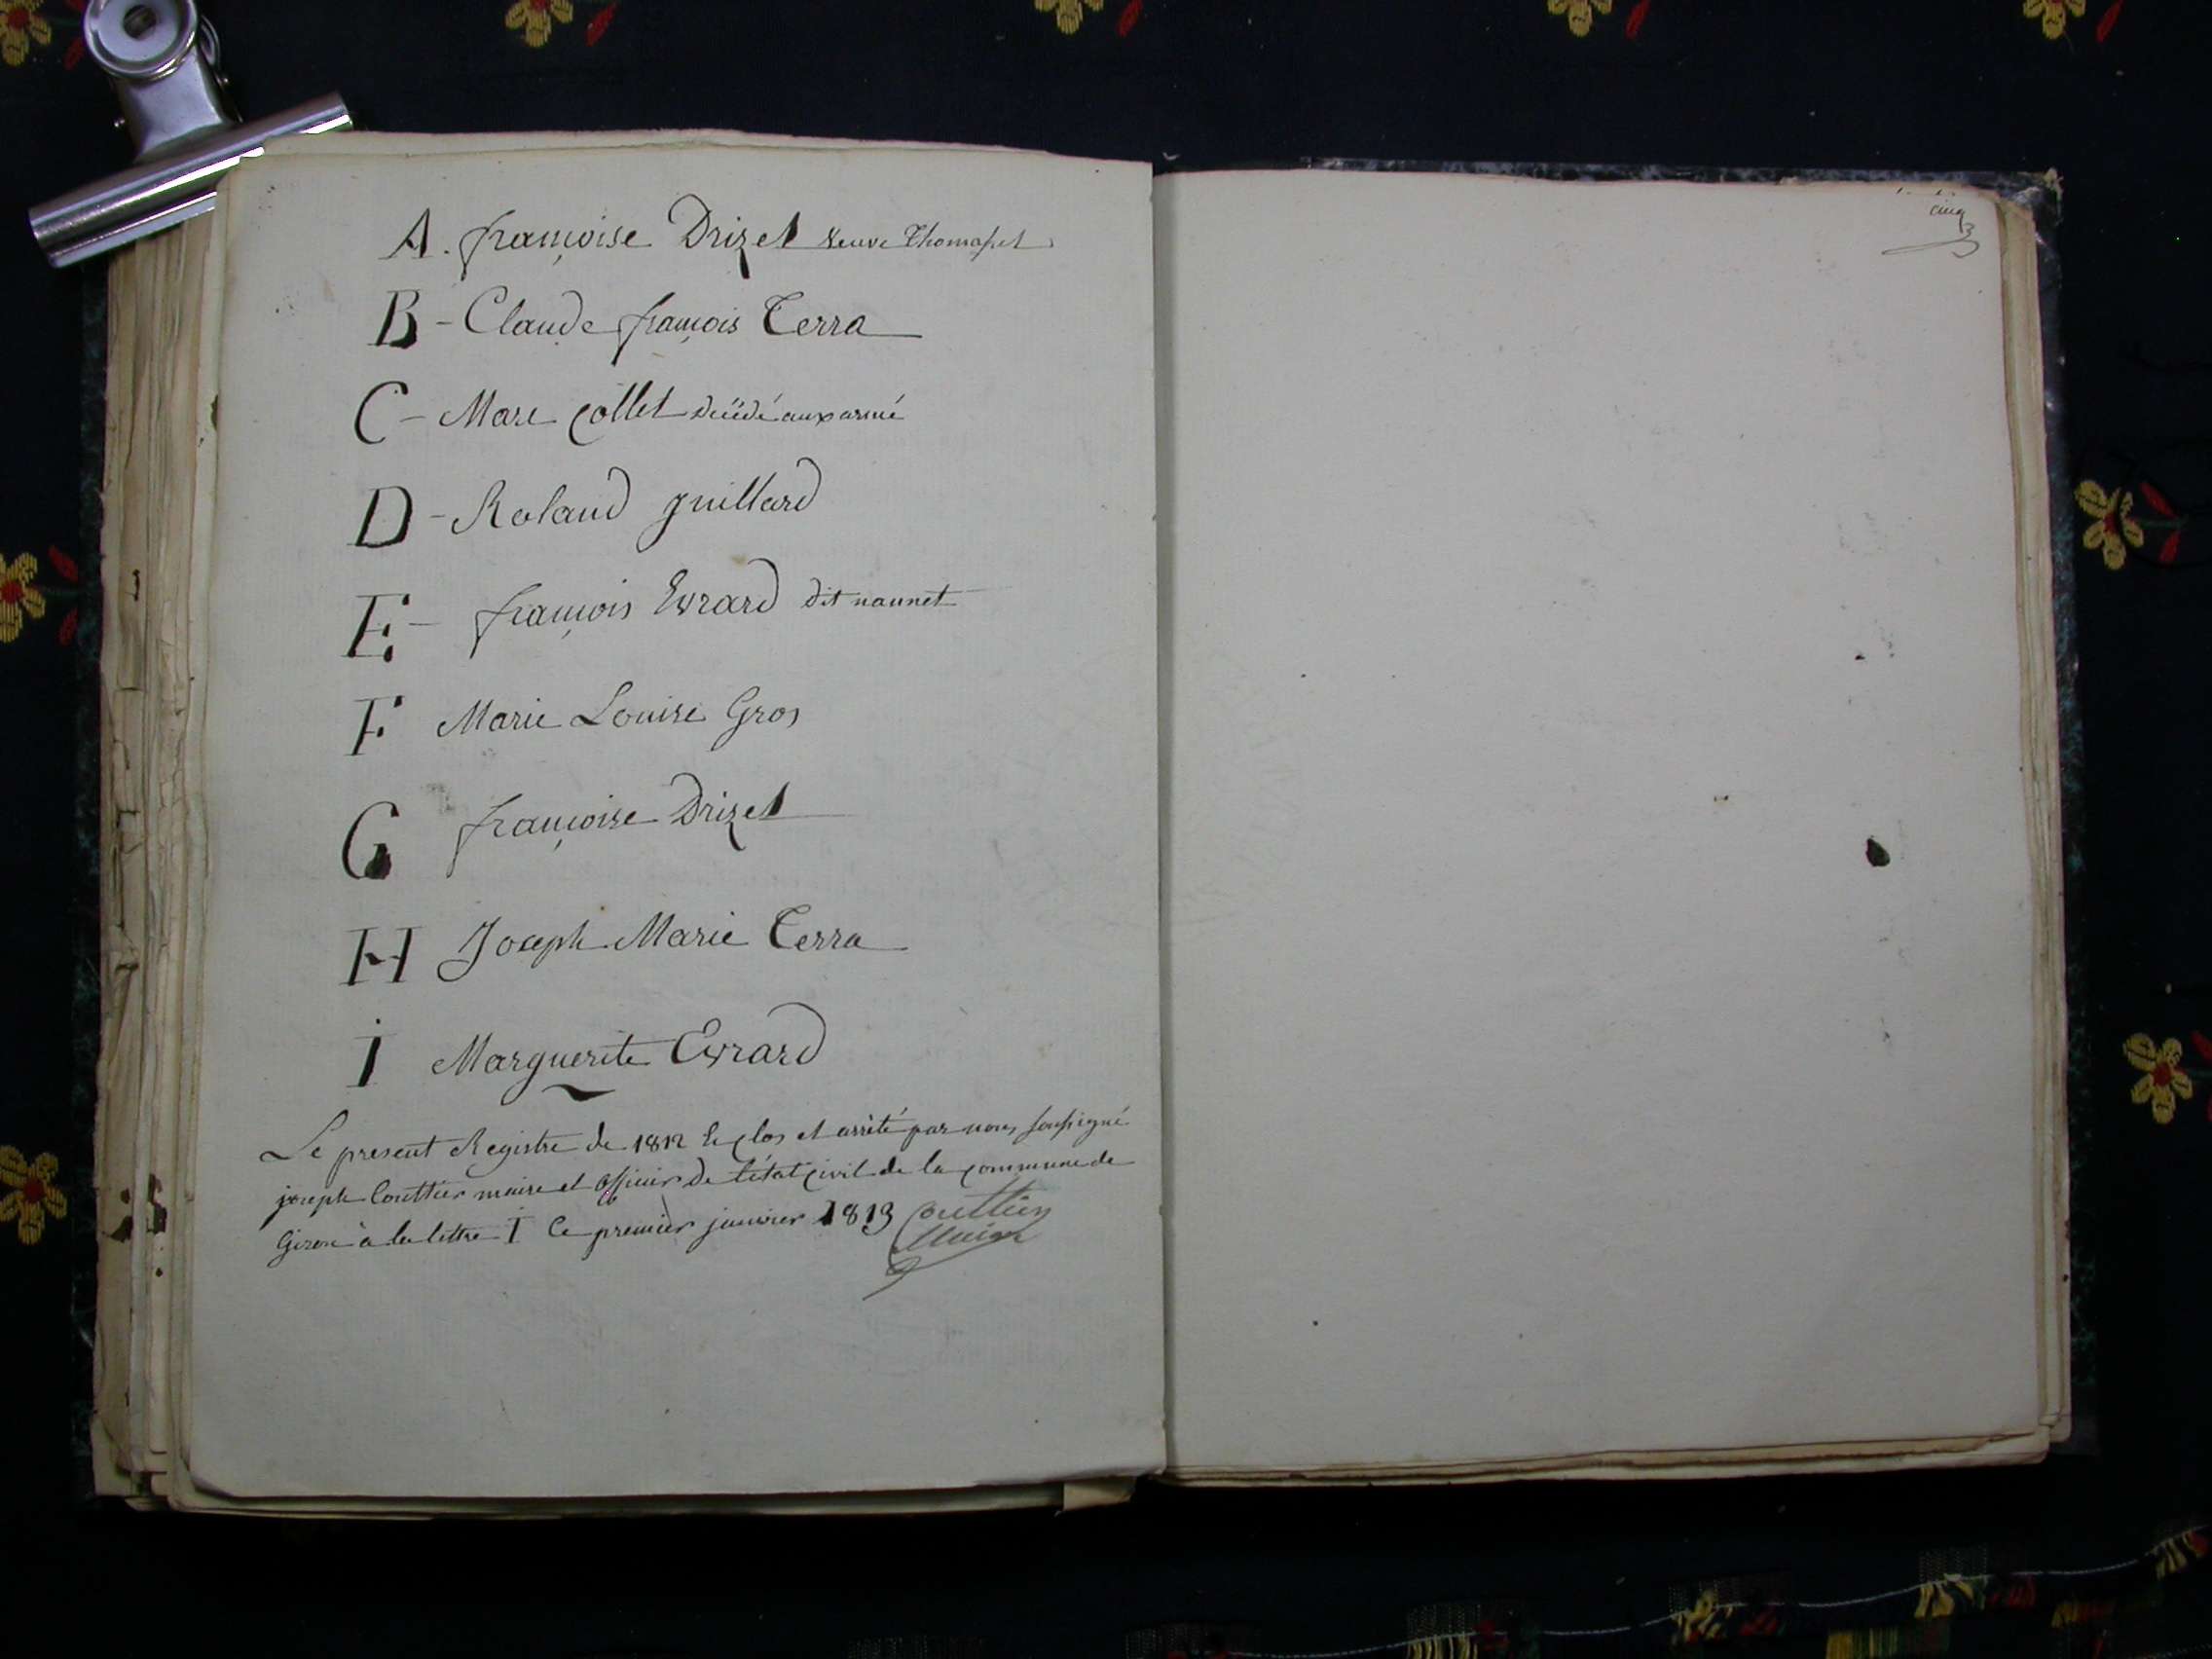 A. françoise Drizet veuve Thomasset
B - Claude françois Terra
C - Marc Collet décédé aux armé
D - Roland guillard
E - françois Evrard dit nannet
F Marie Louise Gros
G françoise Drizet
H Joseph Marie Terra
I Marguerite Evrard
Le present Registre de 1812 le clos et arrêté par nous soussigné
joseph Couttier maire et officier de l'état civil de la commune de
Giron à la lettre I Ce premier janvier 1813 Couttier
Maire
cinq